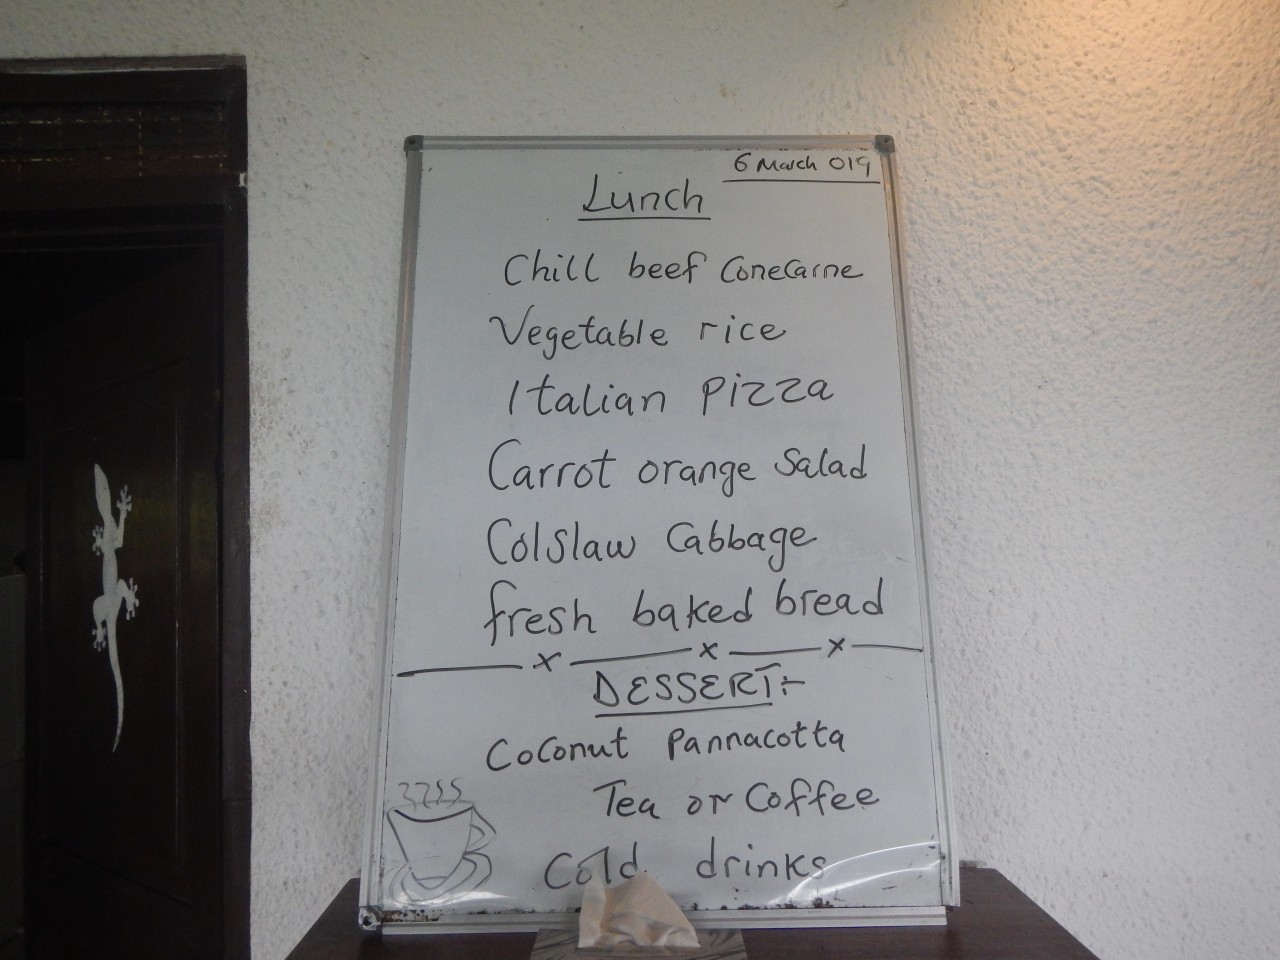 6 March 019
Lunch
Chill beef ConeCarne
Vegetable rice
Italian Pizza
Carrot orange Salad
Colslaw Cabbage
fresh baked bread
DESSERT:-
Coconut Pannacotta
Tea or Coffee
Cold drinks